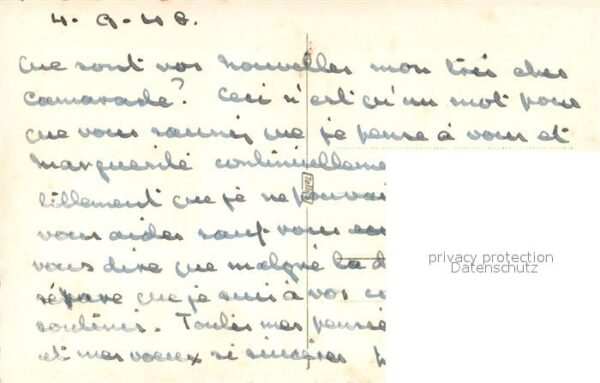 4-9-48.
que sont vos nouvelles mon très cher
camarade? Ceci n'est qu'un mot pour
que vous sauriez que je pense à vous et
Marguerite continuelleme
tillement que je ne pouvai
vous aider sauf vous
vous dire que malgré la d
sépare que je suis à vos co
soutenir. Toutes mes pensée
et mes voeux si sincères p
privacy protection
Datenschutz